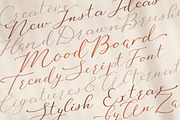 Creative
New Insta Ideas
Hand Drawn Brushes
Mood Board
Trendy Script Font
Ligatures & Alternat
Stylish Extras
by En Za